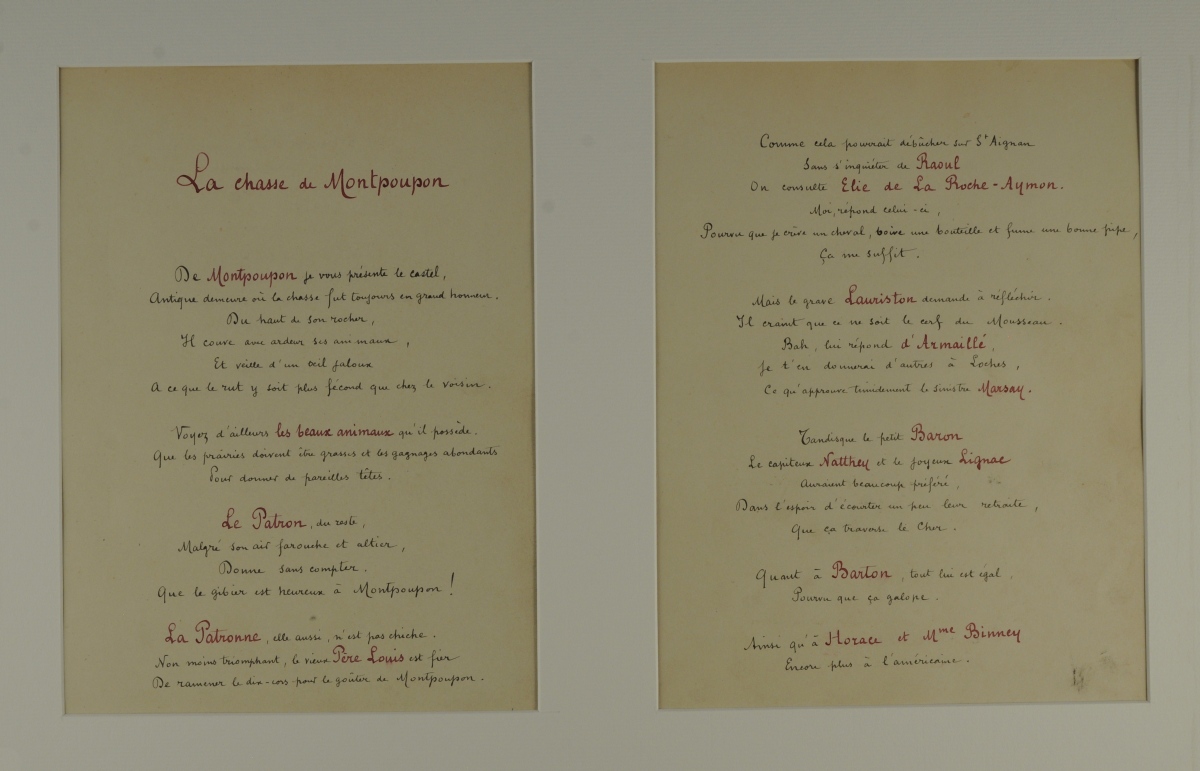 La chasse de Montpoupon
De Montpoupon je vous présente le castel,
Antique demeure où la chasse fut toujours en grand honneur.
Du haut de son rocher,
Il couve avec ardeur ses animaux,
Et veille d'un œil jaloux
A ce que le rut y soit plus fécond que chez le voisin.
Voyez d'ailleurs les beaux animaux qu'il possède.
Que les prairies doivent être grasses et les gagnages abondants
Pour donner de pareilles têtes.
Le Patron, du reste,
Malgré son air farouche et altier,
Donne sans compter.
Que le gibier est heureux à Montpoupon !
La Patronne, elle aussi, n'est pas chiche.
Non moins triomphant, le vieux Père Louis est fier
De ramener le dix-cors pour le goûter de Montpoupon.
Comme cela pourrait débûcher sur St Aignan
Sans s'inquiéter de Raoul
On consulte Elie de La Roche-Aymon.
Moi, répond celui-ci,
Pourvu que je crève un cheval, boive une bouteille et fume une bonne pipe,
Ça me suffit.
Mais le grave Lauriston demande à réfléchir.
Il craint que ce ne soit le cerf du Mousseau.
Bah, lui répond d'Armaillé,
Je t'en donnerai d'autres à Loches,
Ce qu'approuve timidement le sinistre Marsay.
Tandisque le petit Baron
Le capiteux Natthey et le joyeux Lignac
Auraient beaucoup préféré,
Dans l'espoir d'écourter un peu leur retraite,
Que ça traverse le Cher.
Quant à Barton, tout lui est égal,
Pourvu que ça galope.
Ainsi qu'à Horace et Mme Binney
Encore plus à l'américaine.